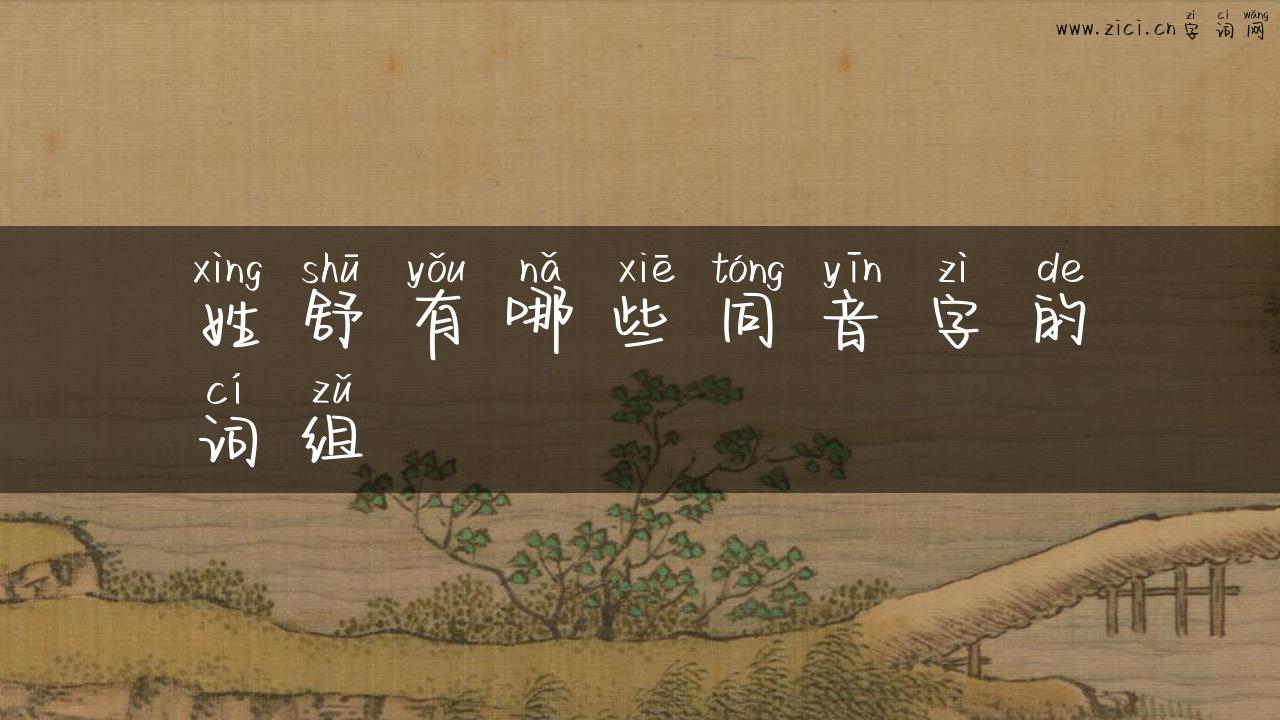 zì cí wǎng
www.zici.cn 字 词 网
xìng shū yǒu nǎ xiē tóng yīn zì de
姓 舒 有 哪 些 同 音 字 的
cí zǔ
词 组